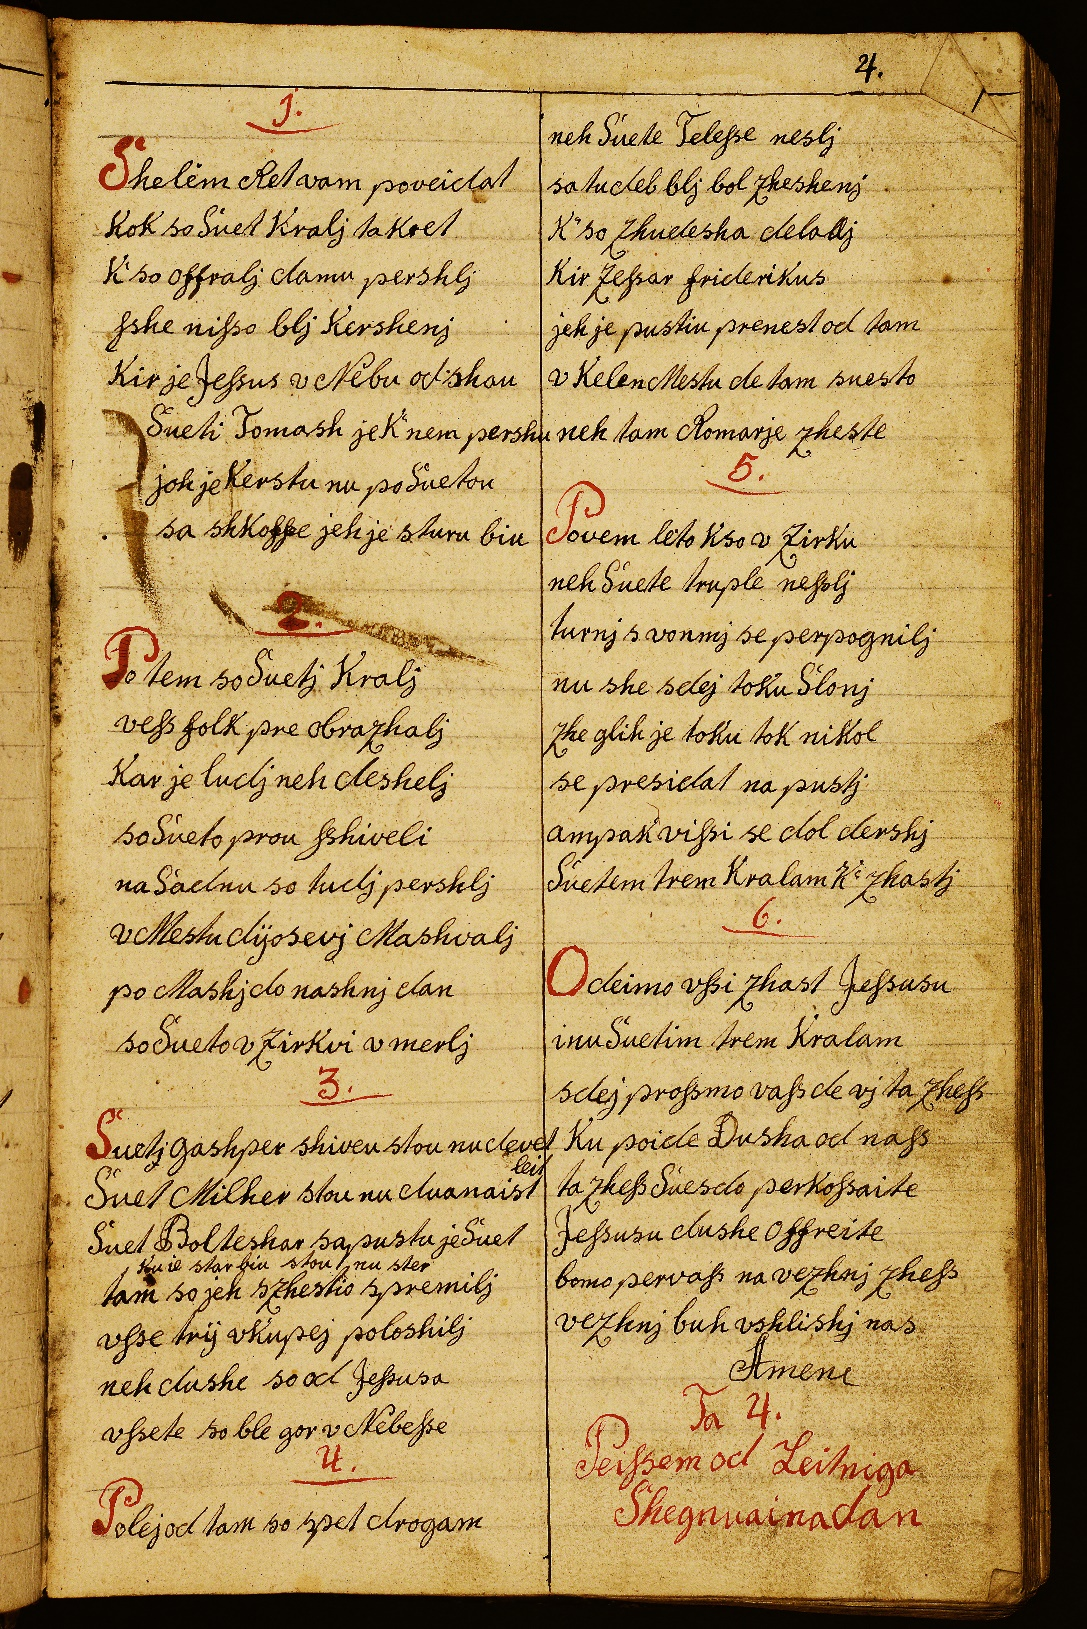 4.
1.
Shelèm Ret vam poveidat
Kok so Suet Kralj ta kret
K' so offralj damu pershlj
sshe nisso blj Kershenj
Kir je Jessus v Nèbu od shau
Sueti Tomash je K' nem pershu
joh je Kerstu nu po Suetou
sa shkoffe jeh je sturu biu
2.
Po tem so Suetj Kralj
vess folk pre obrazhalj
Kar je ludj neh deshelj
so Sueto prou sshiveli
na Sadnu so tudj pershlj
v Mestu dijosevj Mashvalj
po Mashj do nashnj dan
so Sueto v Zirkvi v merlj
3.
Suetj gashper shiveu stou nu devet
leit
Suet Milher stou nu duanaist
Suet Bolteshar sapustu je Suet
ku je star biu stou nu ster
tam so jeh szhestio spremilj
vsse trij vkupej poloshilj
neh dushe so od Jessusa
vssete so ble gor v Nèbesse
4.
Polej od tam so spet drogam
neh Suete Telesse neslj
sa tudeb blj bol zheshenj
K' so zhudesha delalj
Kir Zessar friderikus
jeh je pustiu prenest od tam
v Kelen Mestu de tam suesto
neh tam Romarje zheste
5.
Povem leto k so v Zirku
neh Suete truple nesslj
turnj s vonmj se perpognilj
nu she sdej toku Slonj
zhe glih je toku tok nikol
se presidat na pustj
ampak vissi se dol dershj
Suetem trem Kralam K' zhastj
6.
Odeimo vssi zhast Jessusu
inu Suetim trem Kralam
sdej prossmo vass de vj ta zhess
Ku poide Dusha od nass
ta zhess Suesdo perkossaite
Jessusu dushe offreite
bomo per vass na vezhnj zhess
vezhnj buh vshlishj nas
Amene
Ta 4.
Peissem od Leitniga
Shegnuaina dan